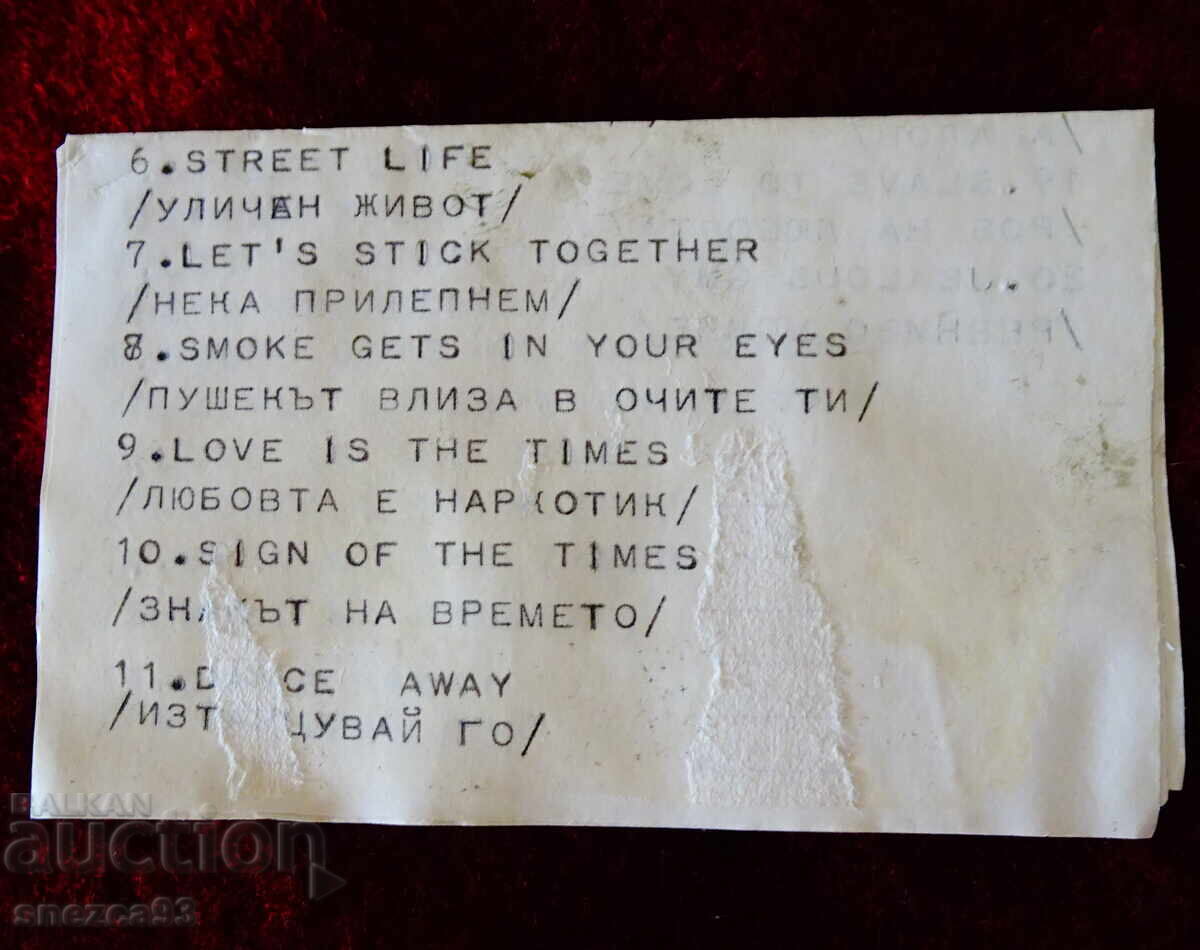 6.STREET LIFE
/УЛИЧЕН ЖИВОТ/
7.LET'S STICK TOGETHER
/НЕКА ПРИЛЕПНЕМ/
8.SMOKE GETS IN YOUR EYES
/ПУШЕКЪТ ВЛИЗА В ОЧИТЕ ТИ/
9.LOVE IS THE TIMES
/ЛЮБОВТА Е НАРКОТИК/
10.SIGN OF THE TIMES
/ЗНАКЪТ НА ВРЕМЕТО/
11. AWAY
ГО/
BALKAN
auction
snezca93